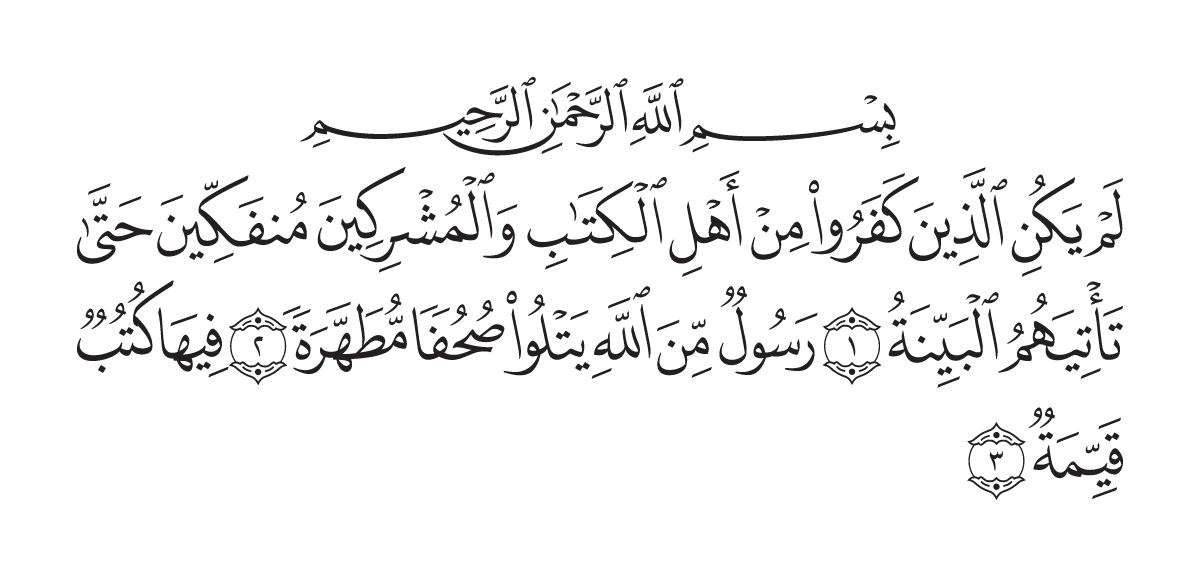 بِسْمِ ٱللَّهِ ٱلرَّحْمَٰنِ ٱلرَّحِيمِ
لَمْ يَكُنِ ٱلَّذِينَ كَفَرُوا۟ مِنْ أَهْلِ ٱلْكِتَـٰبِ وَٱلْمُشْرِكِينَ مُنفَكِّينَ حَتَّىٰ
تَأْتِيَهُمُ ٱلْبَيِّنَةُ ١ رَسُولٌ مِّنَ ٱللَّهِ يَتْلُوا۟ صُحُفًا مُّطَهَّرَةً ٢ فِيهَا كُتُبٌ
قَيِّمَةٌ ٣